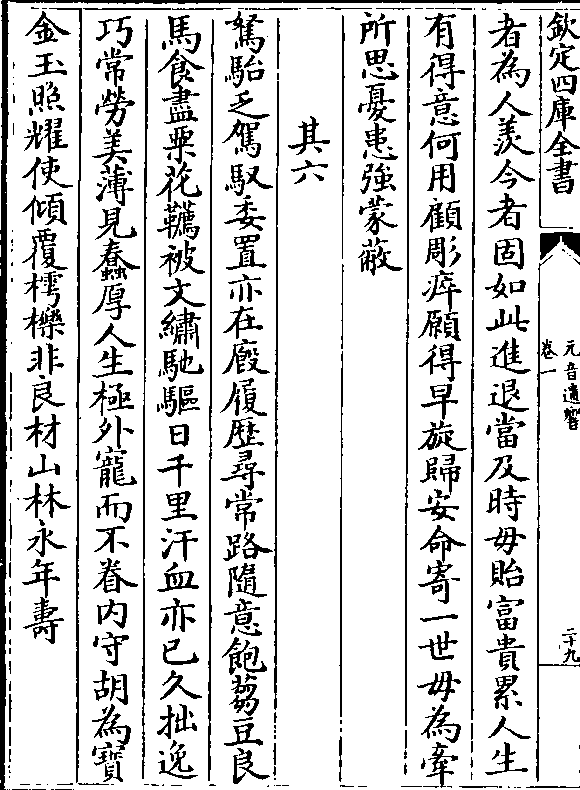 欽定四庫全書
元音遺響
卷一
二十九
者為人羡今者固如此進退當及時毋貽富貴累人生
有得意何用顧彫瘁願得早旋歸安命寄一世毋為牽
所思憂患強蒙蔽
其六
駑駘乏駕馭委置亦在廐履歴尋常路隨意飽芻豆良
馬食盡粟花韉被文繡馳驅日千里汗血亦已久拙逸
巧常勞美薄見蠢厚人生極外寵而不眷内守胡為寳
金玉照耀使傾覆樗櫟非良材山林永年壽